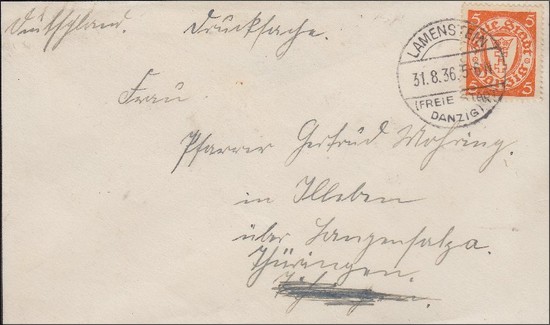 Deutschland. Drucksache.
5 5
Freie Stadt
Danzig
5 5
LAMENSTEIN
31.8.36.
(FREIE
DANZIG)
Frau
Pfarrer Gertrud Mohring.
in Illeben
über Langensalza.
Thüringen.